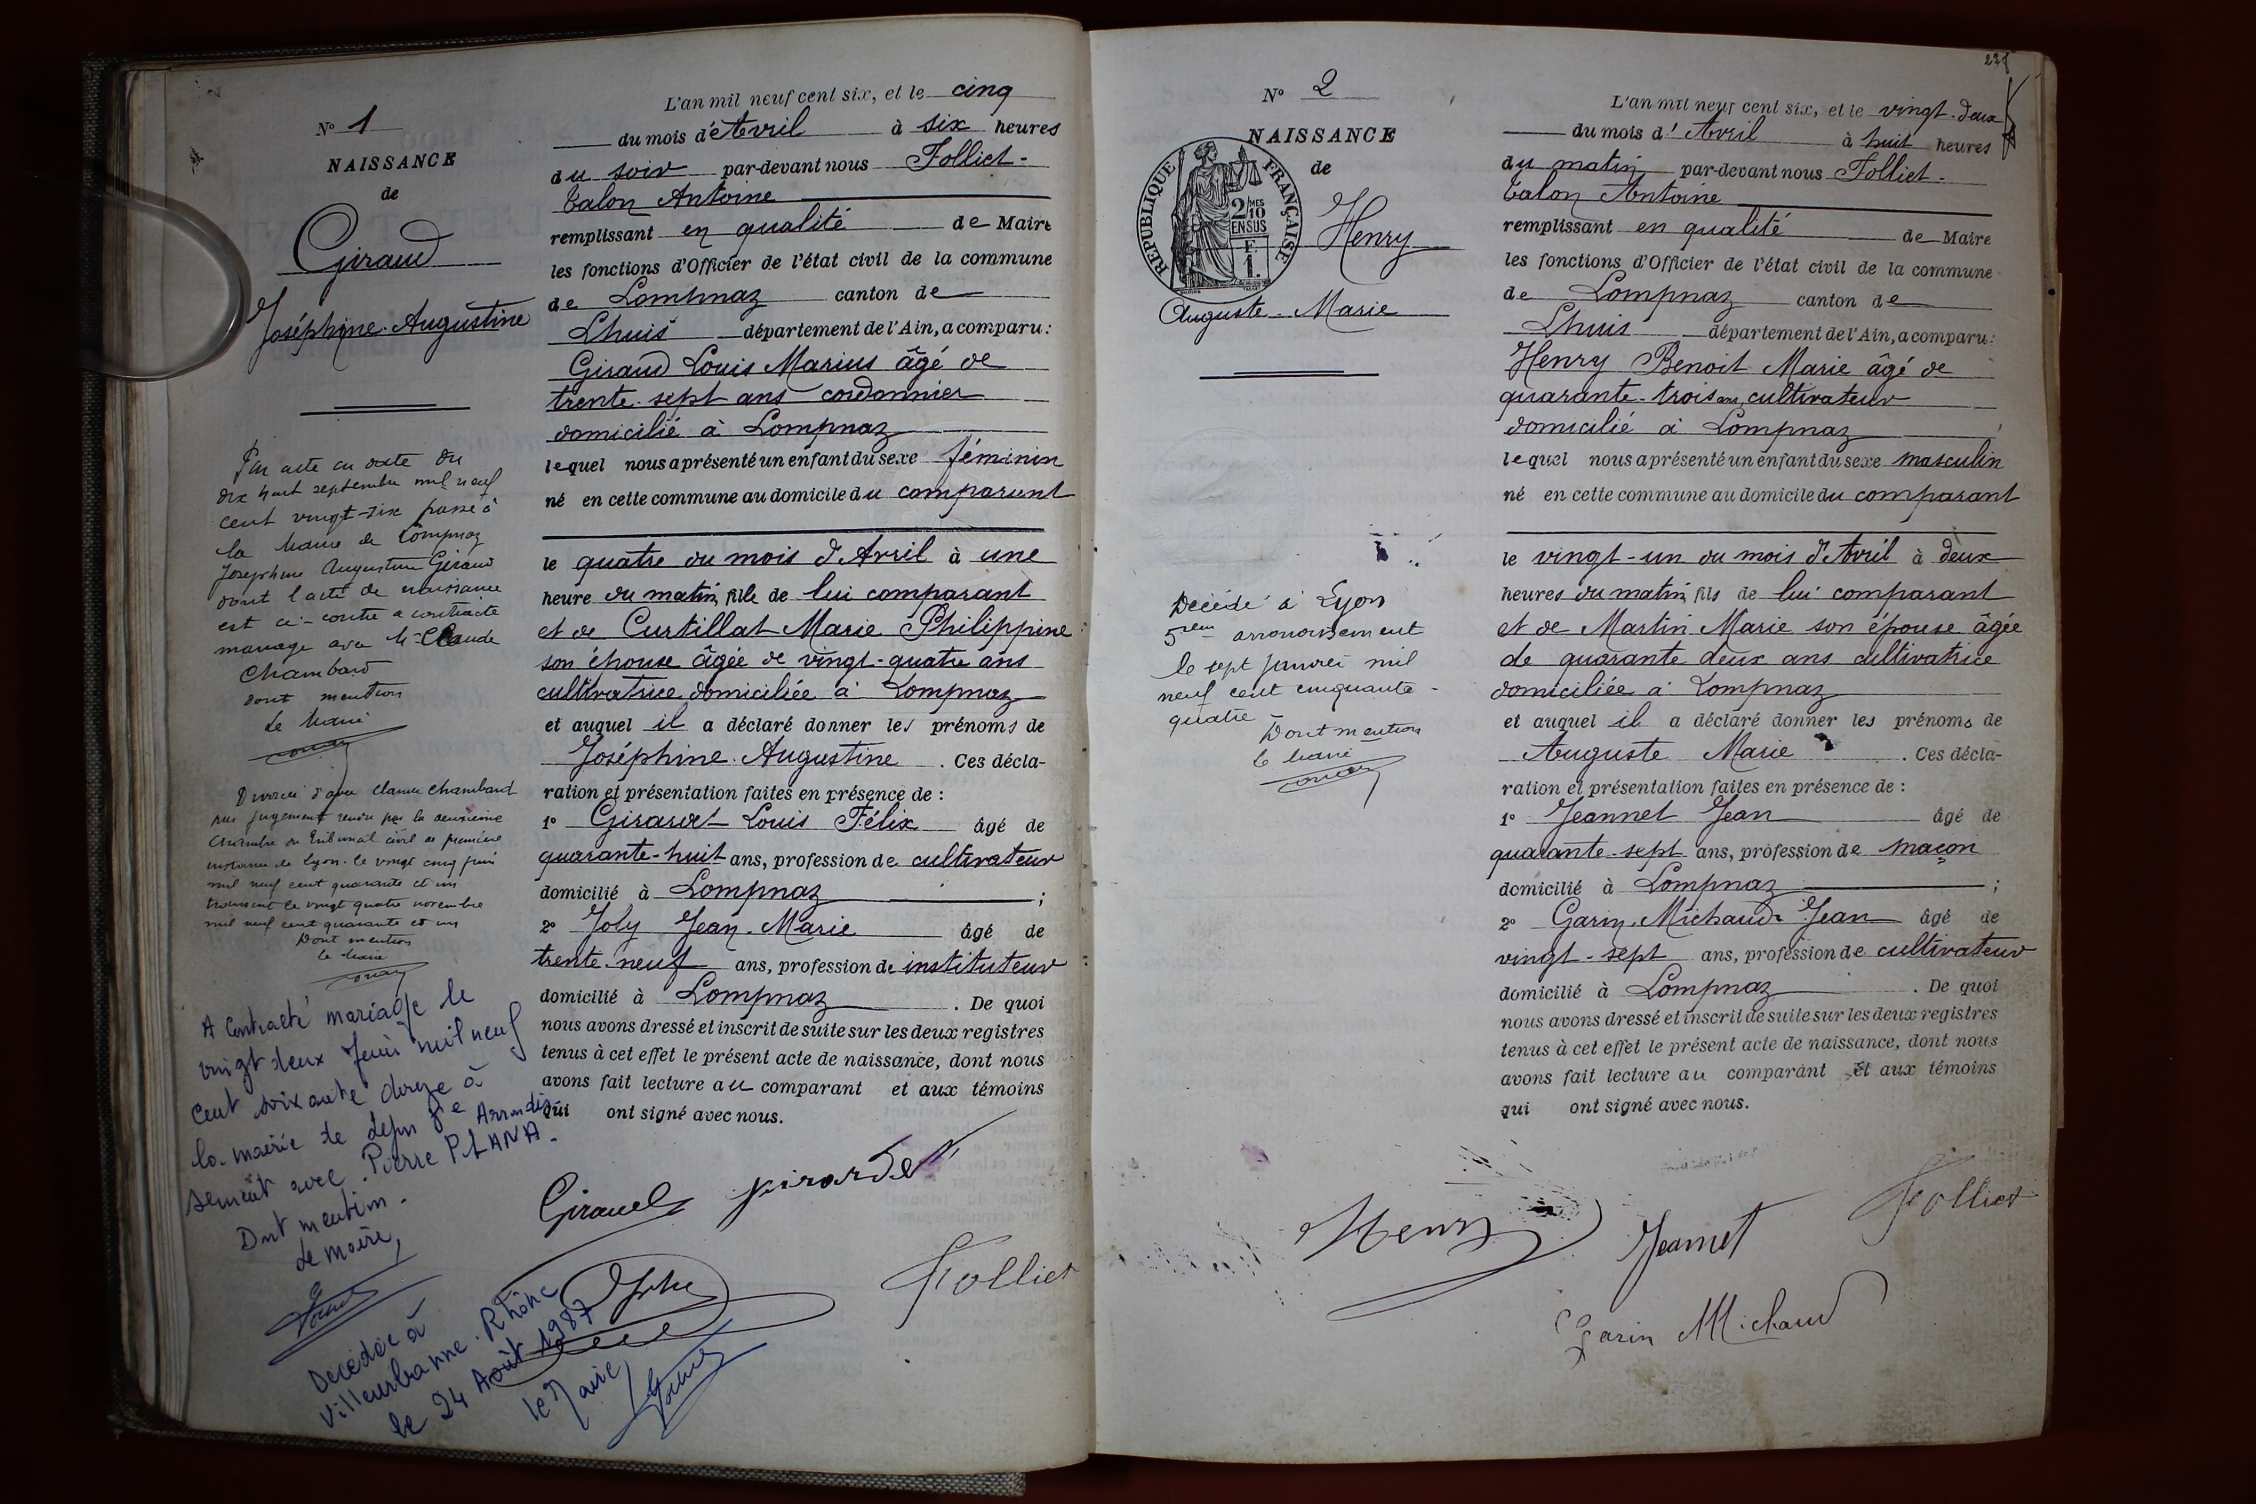 N° 1
NAISSANCE
de
Giraud
Joséphine-Augustine
Par acte en date du
dix huit septembre mil neuf
cent vingt-six passé à
la Mairie de Lompnaz
Joséphine Augustine Giraud
dont l'acte de naissance
est ci-contre a contracté
mariage avec Mr Claude
Chambard
dont mention
Le Maire
Divorcée d'avec Claude Chambard
par jugement rendu par la deuxième
chambre du Tribunal civil de première
instance de Lyon le vingt cinq juin
mil neuf cent quarante et un
transcrit le vingt quatre novembre
mil neuf cent quarante et un
Dont mention
Le Maire
A Contracté mariage le
vingt deux Juin mil neuf
cent soixante douze à
la mairie de Lyon 8e Arrondis-
sement avec Pierre PLANA.
Dont mention.
Le Maire,
Décédée à
Villeurbanne. Rhône
le 24 Août 1987
le Maire,
L'an mil neuf cent six, et le cinq
du mois d'Avril à six heures
du soir par-devant nous Folliet-
Talon Antoine
remplissant en qualité de Maire
les fonctions d'Officier de l'état civil de la commune
de Lompnaz canton de
Lhuis département de l'Ain, a comparu :
Giraud Louis Marius âgé de
trente-sept ans cordonnier
domicilié à Lompnaz
lequel nous a présenté un enfant du sexe féminin
né en cette commune au domicile du comparant
le quatre du mois d'Avril à une
heure du matin, fille de lui comparant
et de Curtillat Marie Philippine
son épouse âgée de vingt-quatre ans
cultivatrice domiciliée à Lompnaz
et auquel il a déclaré donner les prénoms de
Joséphine-Augustine. Ces décla-
ration et présentation faites en présence de :
1° Girardet Louis Félix âgé de
quarante-huit ans, profession de cultivateur
domicilié à Lompnaz ;
2° Joly Jean-Marie âgé de
trente-neuf ans, profession de instituteur
domicilié à Lompnaz. De quoi
nous avons dressé et inscrit de suite sur les deux registres
tenus à cet effet le présent acte de naissance, dont nous
avons fait lecture au comparant et aux témoins
qui ont signé avec nous.
Giraud girardet
Folliet
228
N° 2
NAISSANCE
de
Henry
Auguste-Marie
RÉPUBLIQUE FRANÇAISE
2/10 MES
EN SUS
F.
1.
Décédé à Lyon
5rem arrondissement
le sept janvier mil
neuf cent cinquante-
quatre
Dont mention
Le Maire
L'an mil neuf cent six, et le vingt-deux
du mois d'Avril à huit heures
du matin par-devant nous Folliet-
Talon Antoine
remplissant en qualité de Maire
les fonctions d'Officier de l'état civil de la commune
de Lompnaz canton de
Lhuis département de l'Ain, a comparu :
Henry Benoit Marie âgé de
quarante-trois ans, cultivateur
domicilié à Lompnaz
lequel nous a présenté un enfant du sexe masculin
né en cette commune au domicile du comparant
le vingt-un du mois d'Avril à deux
heures du matin, fils de lui comparant
et de Martin Marie son épouse âgée
de quarante deux ans cultivatrice
domiciliée à Lompnaz
et auquel il a déclaré donner les prénoms de
Auguste Marie. Ces décla-
ration et présentation faites en présence de :
1° Jeannet Jean âgé de
quarante-sept ans, profession de maçon
domicilié à Lompnaz ;
2° Garin-Michaud Jean âgé de
vingt-sept ans, profession de cultivateur
domicilié à Lompnaz. De quoi
nous avons dressé et inscrit de suite sur les deux registres
tenus à cet effet le présent acte de naissance, dont nous
avons fait lecture au comparant et aux témoins
qui ont signé avec nous.
Henry Jeannet Folliet
Garin Michaud